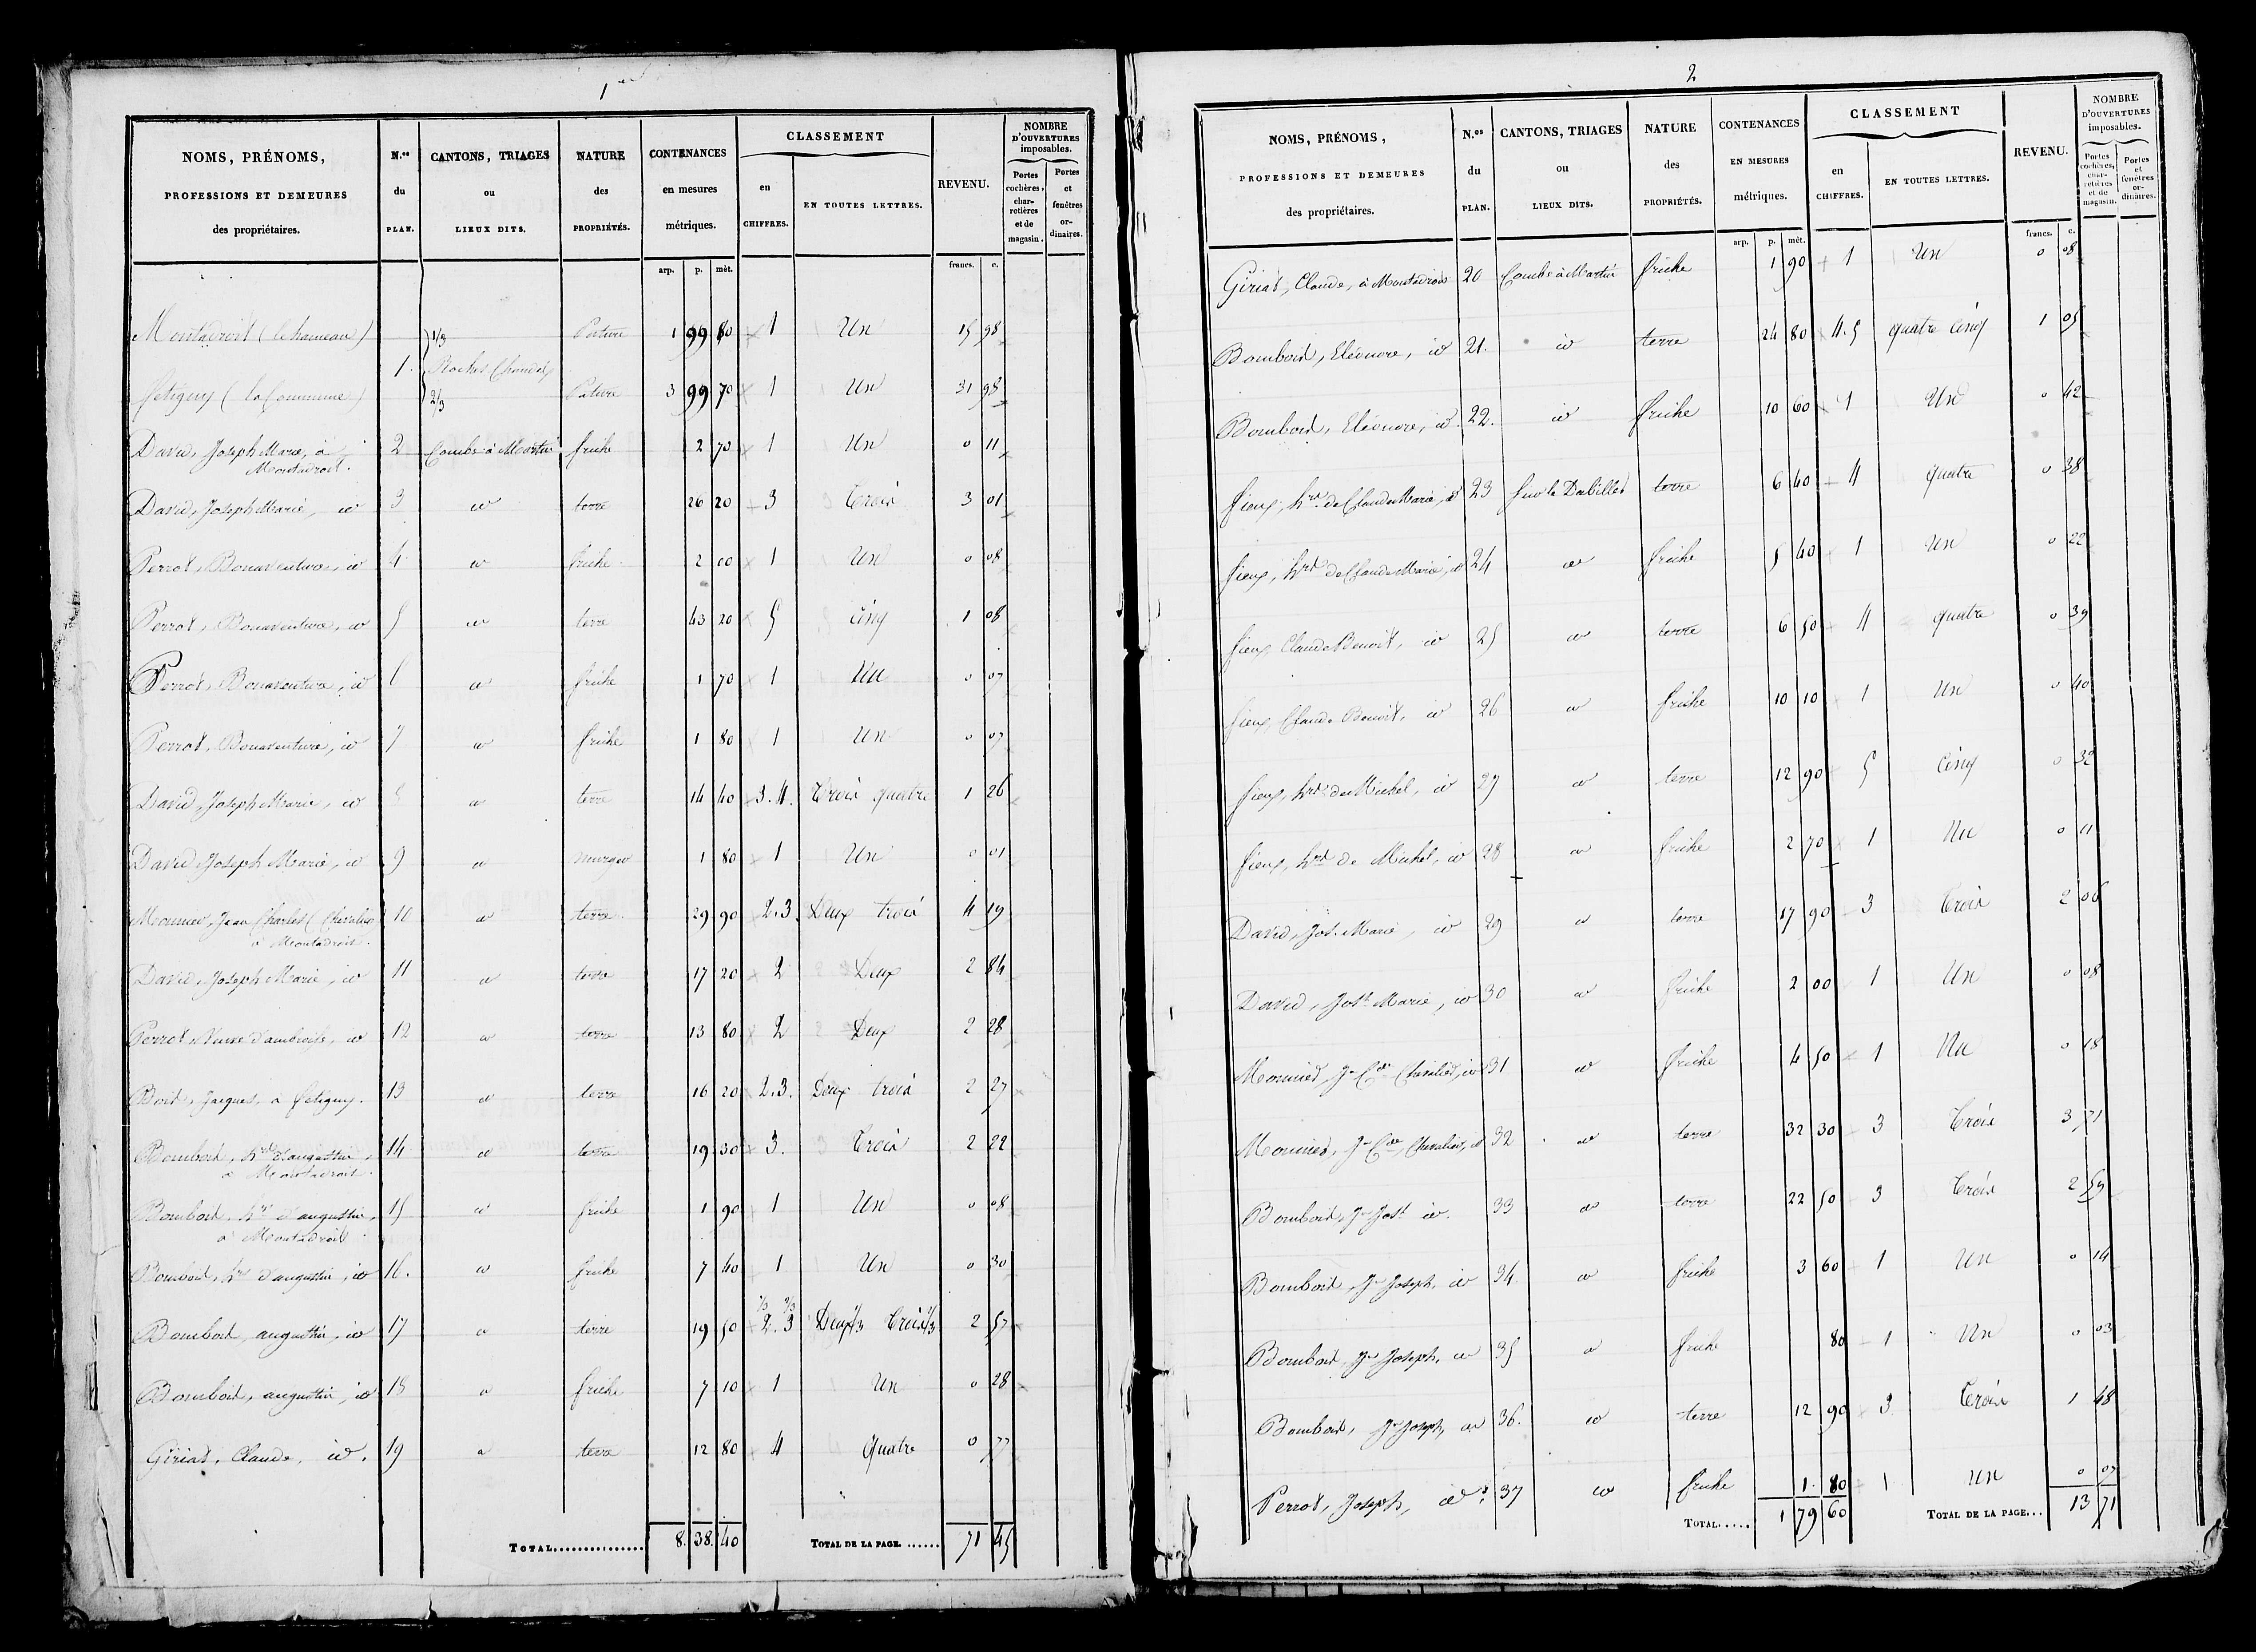 1er
NOMS, PRÉNOMS, PROFESSIONS ET DEMEURES des propriétaires. | N.os du PLAN. | CANTONS, TRIAGES ou LIEUX DITS. | NATURE des PROPRIÉTÉS. | CONTENANCES en mesures métriques. | CLASSEMENT en CHIFFRES. | EN TOUTES LETTRES. | REVENU. | NOMBRE D'OUVERTURES imposables. Portes cochères, charretières et de magasin. | Portes et fenêtres ordinaires.
arp. p. mèt. francs. c.
Montadroit (le hameau) 1/3 Pature 1 99 80 1 Un 15 98
1. Roches
Fetigny (la Commune) 2/3 Pature 3 99 70 1 Un 31 98
David, Joseph Marie, à 2 Combe à Martin friche 2 70 1 Un 0 11
Montadroit.
David, Joseph Marie, id 3 id terre 26 20 3 Trois 3 01
Perrot, Bonaventure, id 4 id friche 2 00 1 Un 0 08
Perrot, Bonaventure, id 5 id terre 43 20 5 Cinq 1 08
Perrot, Bonaventure, id 6 id friche 1 70 1 Un 0 07
Perrot, Bonaventure, id 7 id friche 1 80 1 Un 0 07
David, Joseph Marie, id 8 id terre 14 40 3.4. Trois quatre 1 26
David Joseph Marie, id 9 id murger 1 80 1 Un 0 01
Monnier, Jean Charles Chevalier 10 id terre 29 90 2.3. Deux trois 4 19
à Montadroit.
David, Joseph Marie, id 11 id terre 17 20 2 Deux 2 84
Perrot, Veuve d'ambroise, id 12 id terre 13 80 2 Deux 2 28
Jacques, à Fetigny. 13 id terre 16 20 2.3. Deux trois 2 27
Bomboid, hrs d'augustin, 14 id terre 19 30 3. Trois 2 22
à Montadroit.
Bomboid, hrs d'augustin, 15 id friche 1 90 1 Un 0 08
à Montadroit
Bomboid, hrs d'augustin, id 16. id friche 7 40 1 Un 0 30
1/3 2/3
Bomboid, augustin, id 17 id terre 19 50 2.3 Deux 1/3 Trois 2/3 2 57
Bomboid, augustin, id 18 id friche 7 10 1 Un 0 28
Giriat, Claude, id. 19 id terre 12 80 4 Quatre 0 77
TOTAL 8. 38. 40 TOTAL DE LA PAGE. 71 45
2
NOMS, PRÉNOMS, PROFESSIONS ET DEMEURES des propriétaires. | N.os du PLAN. | CANTONS, TRIAGES ou LIEUX DITS. | NATURE des PROPRIÉTÉS. | CONTENANCES EN MESURES métriques. | CLASSEMENT en CHIFFRES. | EN TOUTES LETTRES. | REVENU. | NOMBRE D'OUVERTURES imposables. Portes cochères, charretières et de magasin. | Portes et fenêtres ordinaires.
arp. p. mèt. francs. c.
Giriat, Claude, à Montadroit 20 Combe à Martin friche 1 90 1 Un 0 08
Bomboid, Eléonore, id 21. id terre 24 80 4.5 quatre Cinq 1 05
Bomboid, Eléonore, id. 22. id friche 10 60 1 Un 0 42
hrs de Claude Marie, id 23 terre 6 40 4 quatre 0 38
hrs de Claude Marie, id 24 id friche 5 40 1 Un 0 22
Claude Benoit, id 25 id terre 6 50 4 quatre 0 39
Claude Benoit, id 26 id friche 10 10 1 Un 0 40
hrs de Michel, id 27 id terre 12 90 5 Cinq 0 32
hrs de Michel, id 28 id friche 2 70 1 Un 0 11
David, Jos. Marie, id 29 id terre 17 90 3 Trois 2 06
David, Josh Marie, id 30 id friche 2 00 1 Un 0 08
Monnier, Jn Ces Chevalier, id 31 id friche 4 50 1 Un 0 18
Monnier, Jn Ces Chevalier, id 32 id terre 32 30 3 Trois 3 71
Bomboid, Jn Josh id. 33 id terre 22 50 3 Trois 2 59
Bomboid, Jn Joseph, id 34 id friche 3 60 1 Un 0 14
Bomboid, Jn Joseph, id 35 id friche 80 1 Un 0 03
Bomboid, Jn Joseph, id 36. id terre 12 90 3 Trois 1 48
Perrot, Joseph, id 37 id friche 1. 80 1 Un 0 07
TOTAL 1 79 60 TOTAL DE LA PAGE 13 71